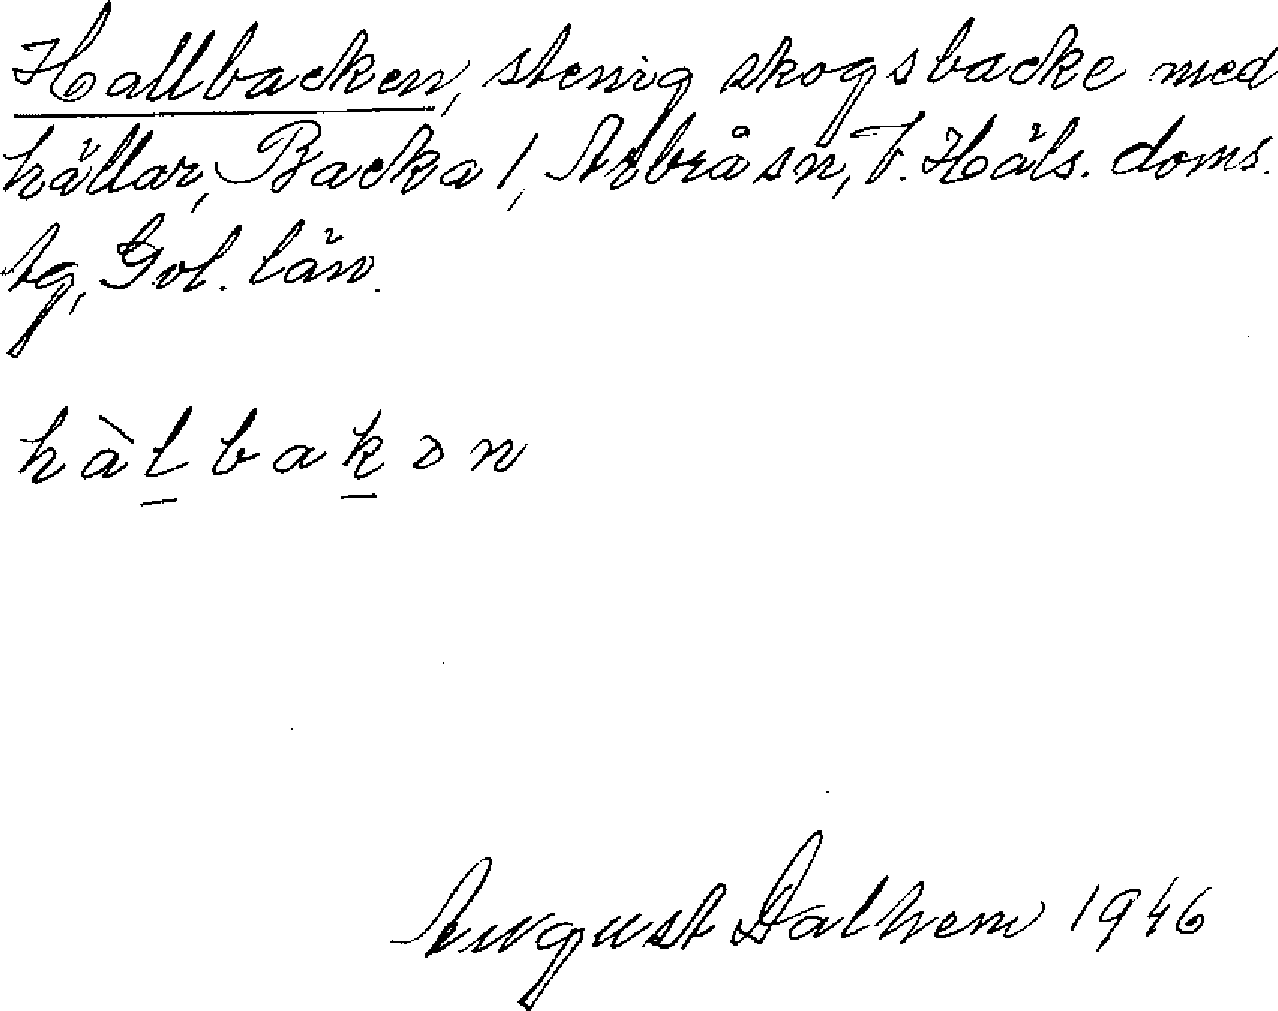 Hallbacken, stenig skogsbacke med
hällar, Backa 1, Arbrå sn, V. Häls. doms.
tg, Gvl. län.
hàl̠bak̠ən
August Dalhem 1946